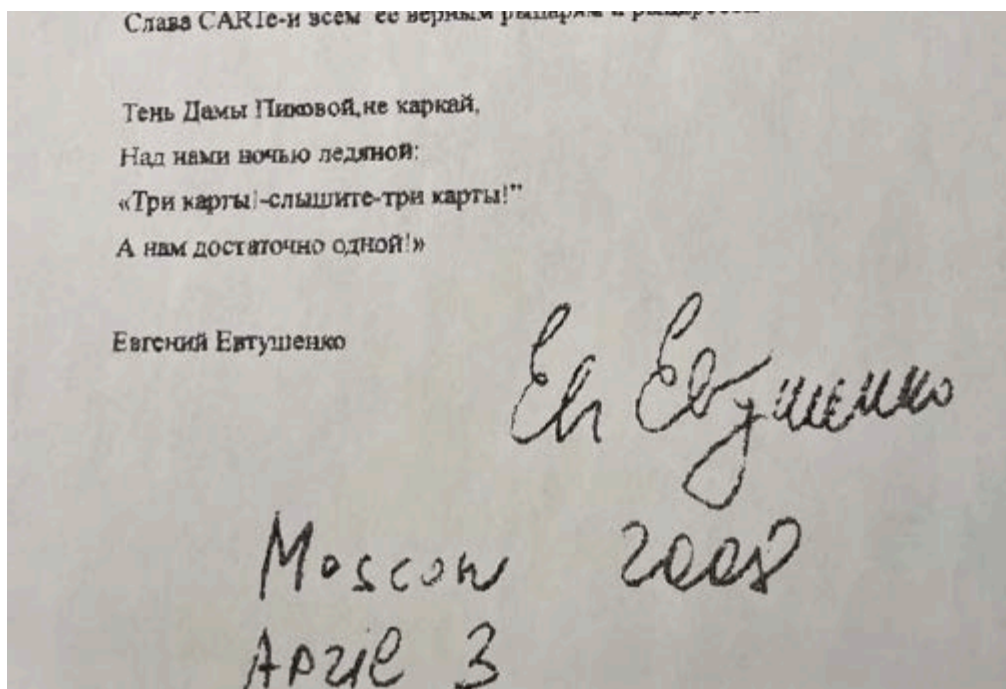 Слава CARTe-и всем ее верным рыцарям и
Тень Дамы Пиковой,не каркай,
Над нами ночью ледяной:
«Три карты!-слышите-три карты!"
А нам достаточно одной!»
Евгений Евтушенко
Ев Евтушенко
Moscow 2008
April 3